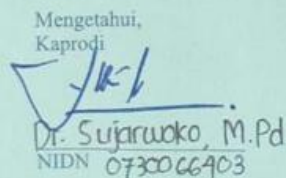 Mengetahui,
Kaprodi
Dr. Sujarwoko, M.Pd
NIDN 0730066403